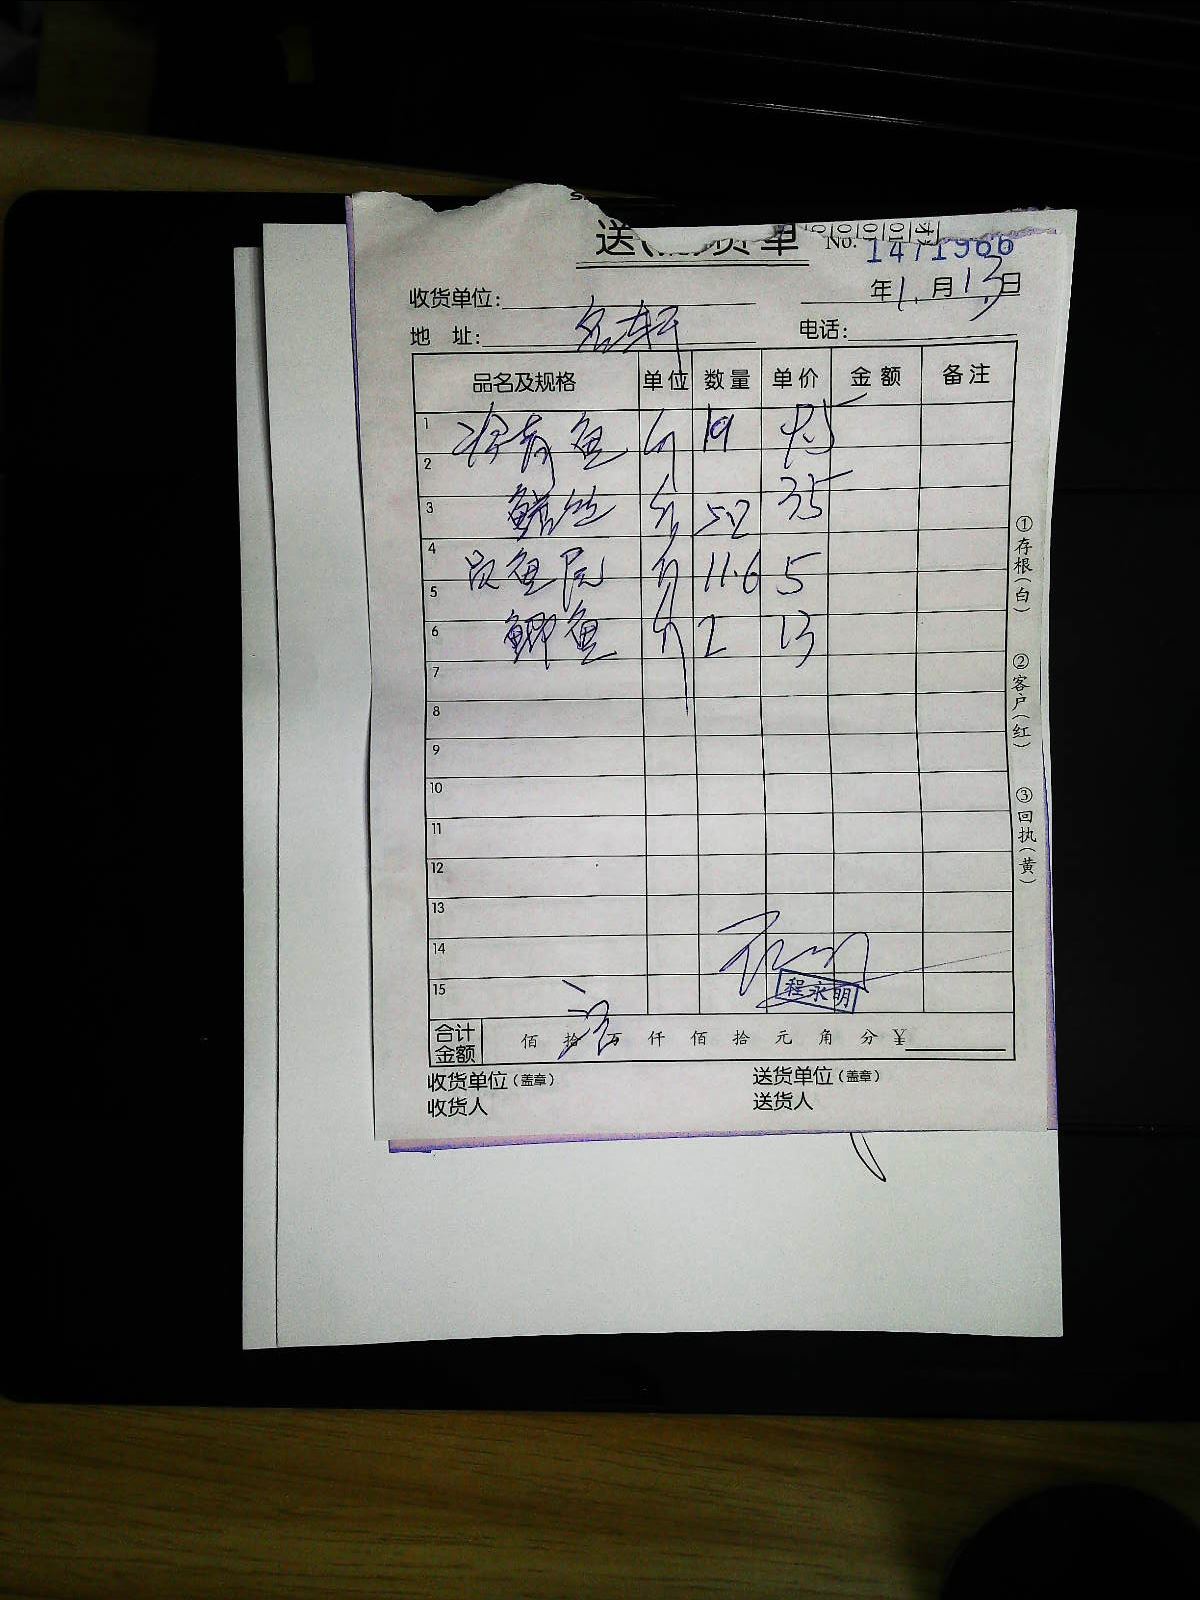 送 货单 No. 1471966
年1.月13日
收货单位:
地 址: 名轩 电话:
品名及规格 单位 数量 单价 金额 备注
1 青鱼 斤 19 9.5
2
3 鳝丝 斤 5.2 35
4 鱼 斤 11.6 5
5
6 鲫鱼 斤 2 13
7
8
9
10
11
12
13
14
15
程永明
合计金额 佰 拾 万 仟 佰 拾 元 角 分 ¥
收货单位(盖章) 送货单位(盖章)
收货人 送货人
①存根(白) ②客户(红) ③回执(黄)